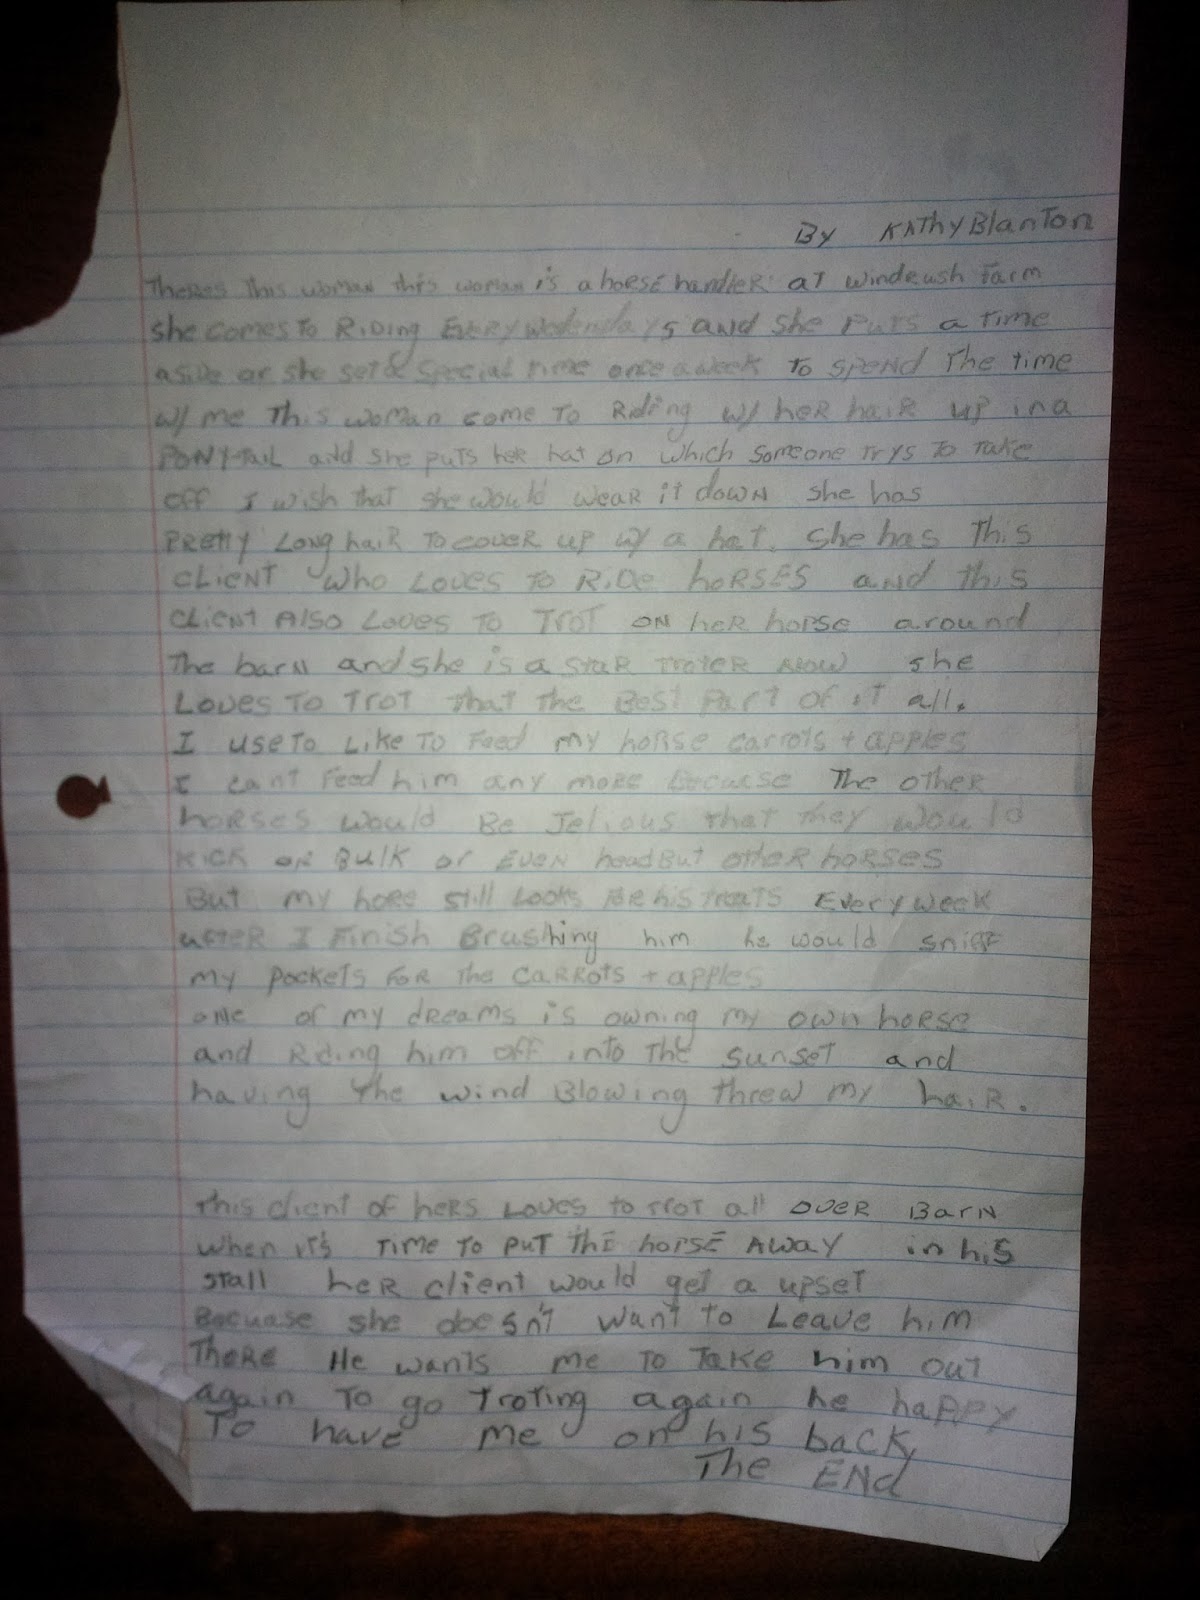 By Kathy Blanton
Theres This woman this woman is a horse handler at windrush farm
she comes to Riding Every wedensdays and she Puts a time
aside or she set a special time once a week to spend The time
w/ me This woman come To Riding w/ her hair up in a
Pony-tail and she puts her hat on which someone trys to take
off I wish that she would wear it down she has
Pretty Long hair To cover up w/ a hat. She has This
client who Loves to Ride horses and this
client Also Loves To Trot on her horse around
The barn and she is a star troter now she
Loves To Trot that the Best Part of it all.
I use to Like to Feed my horse carrots + apples
I cant Feed him any more Becuase The other
horses would Be Jelious that they would
kick or Bulk or Even headBut other horses
But my hore still Looks For his treats Every week
after I Finish Brushing him he would sniff
my pockets For the carrots + apples
one of my dreams is owning my own horse
and Riding him off into The sunset and
having the wind Blowing threw my hair.
This client of hers Loves to trot all over Barn
when it's Time To put the horse Away in his
stall her client would get a upset
Becuase she doesn't want to Leave him
There He wants me To Take him out
again To go Troting again he happy
To have me on his back,
The End